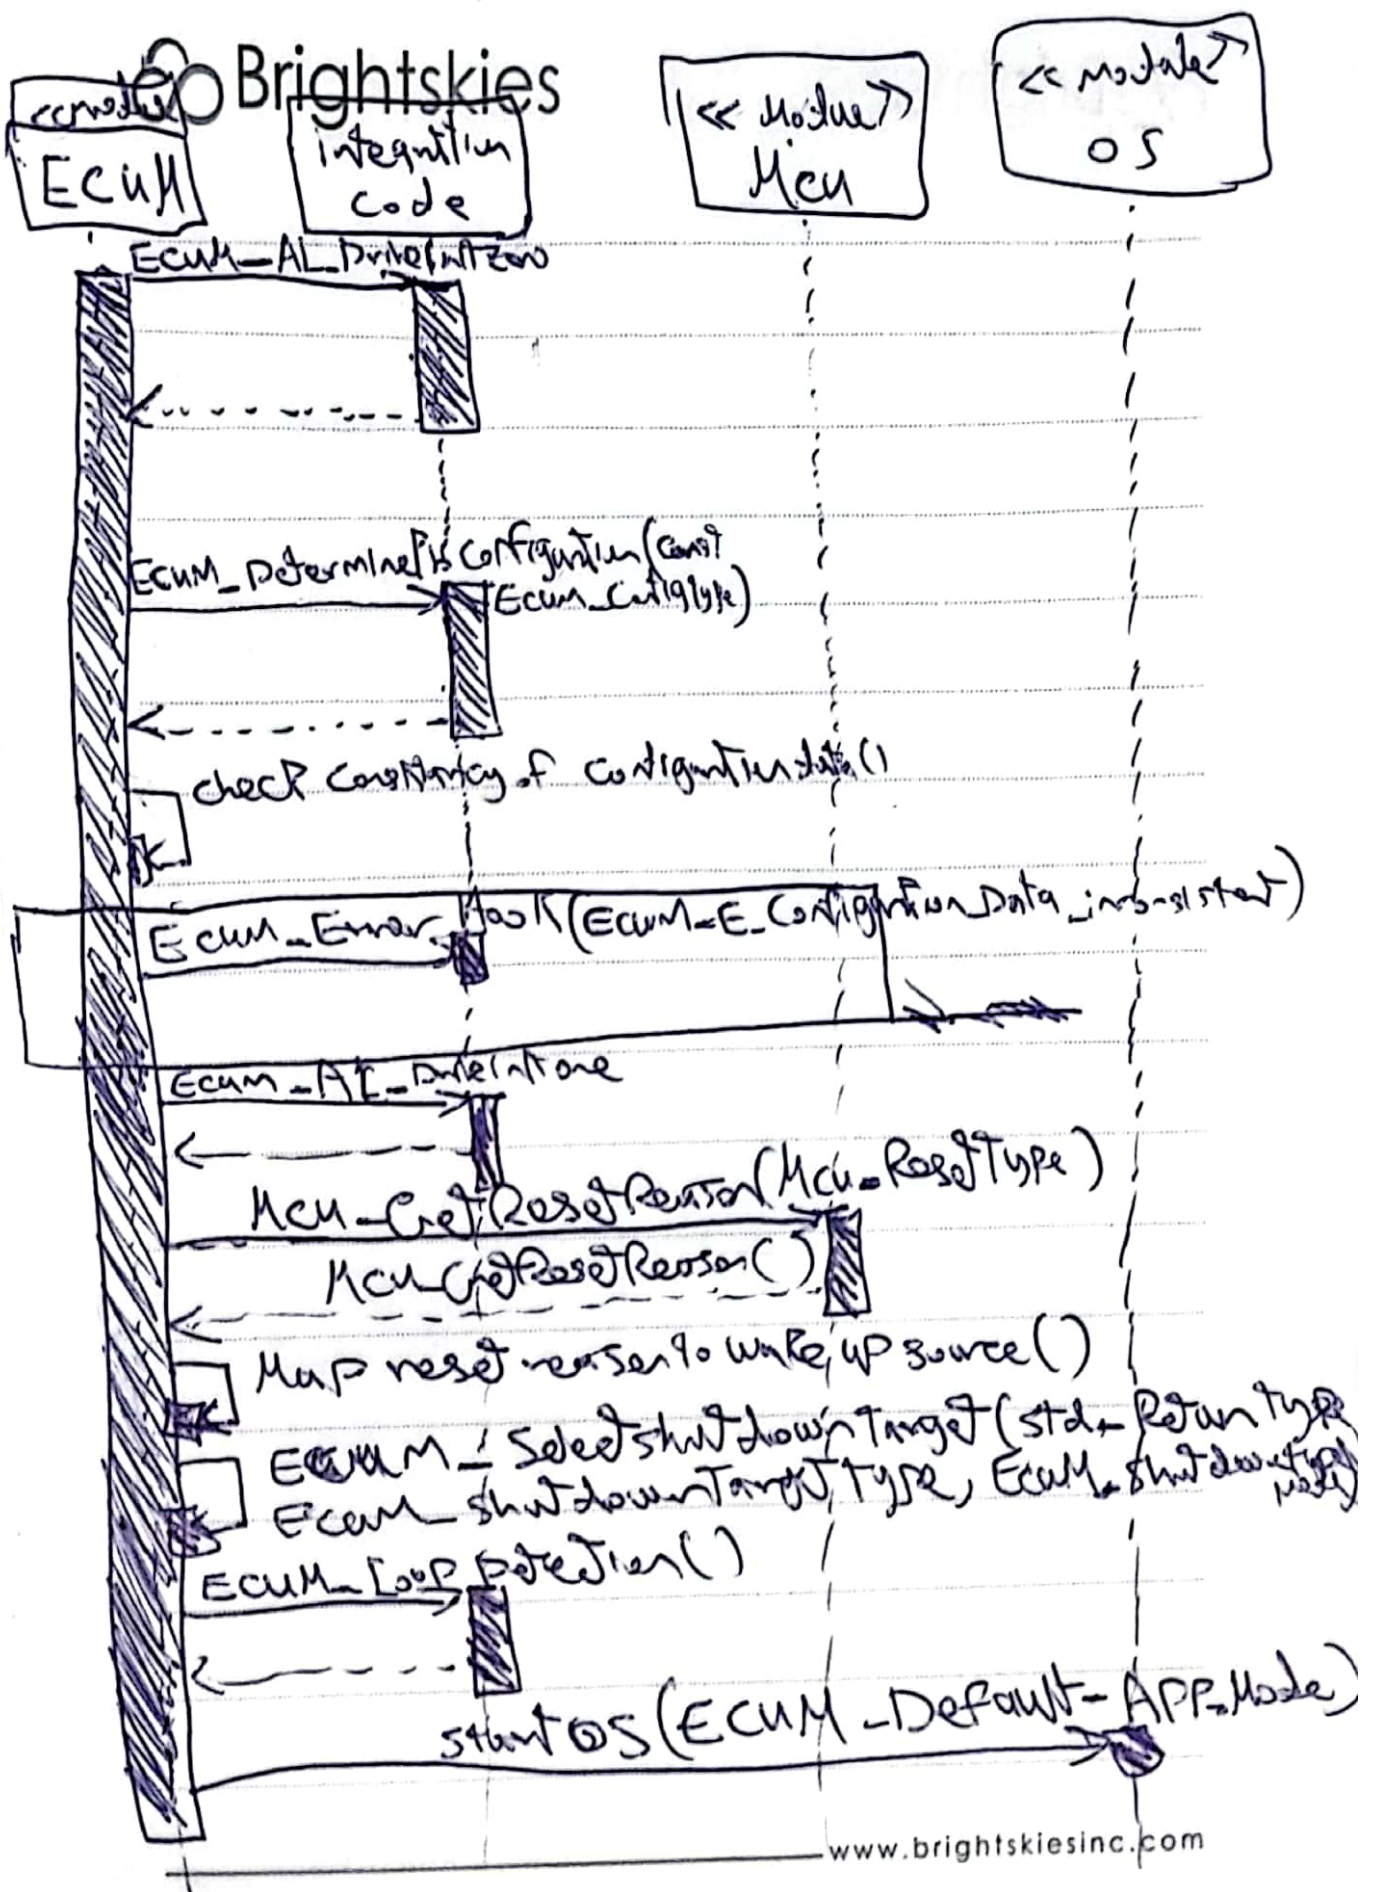 Brightskies
<<module>>
ECUM
integration
code
<<Module>>
MCU
<<module>>
OS
ECUM_AL_DriverInitZero
ECUM_DeterminePbConfiguration(const
ECUM_ConfigType)
check Consistancy of configurationdata()
ECUM_Error_Hook(ECUM_E_Configuration_Data_inconsistent)
ECUM_AL_DriverInitone
MCU_GetResetReason(MCU_ResetType)
MCU_GetResetReason()
Map reset reason to wake up source()
ECUM_SelectshutdownTarget(std_ReturnType
ECUM_shutdownTargetType, ECUM_shutdown
ECUM_Loop potection()
start OS(ECUM_Default_APP_Mode)
www.brightskiesinc.com